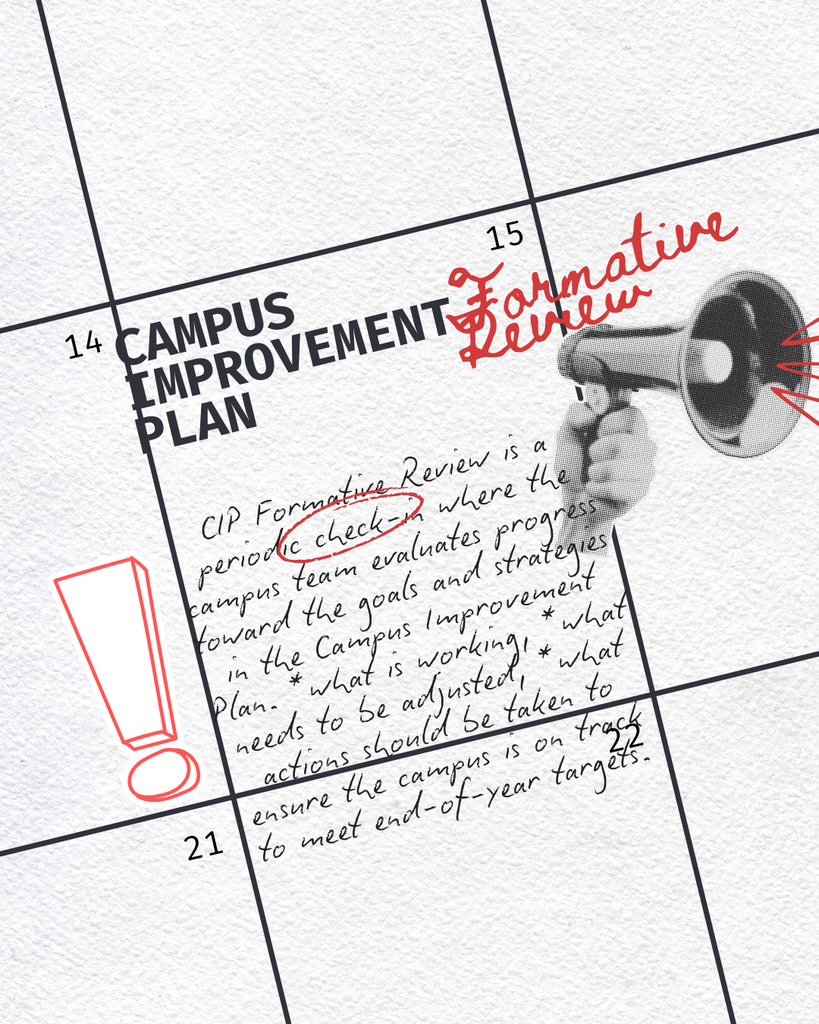 15
Formative
Review
14
CAMPUS
IMPROVEMENT
PLAN
CIP Formative Review is a
periodic check-in where the
campus team evaluates progress
toward the goals and strategies
in the Campus Improvement
Plan. * what is working, * what
needs to be adjusted, * what
actions should be taken to
ensure the campus is on track
to meet end-of-year targets.
22
21